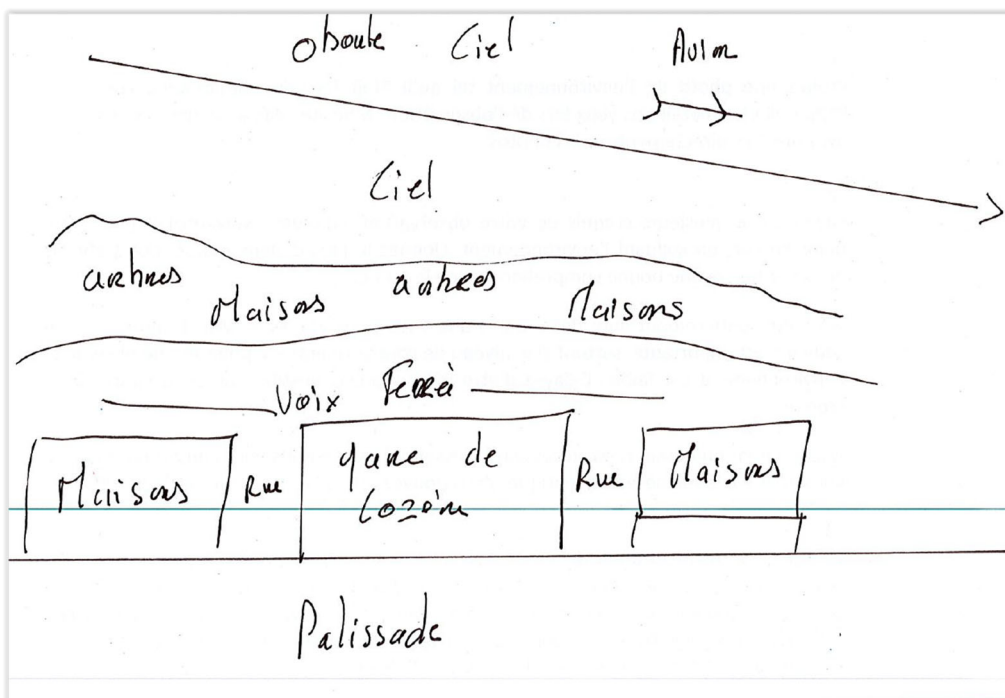 boule Ciel Avion
Ciel
arbres arbres
Maisons Maisons
Voix Ferré
Maisons Rue gare de Rue Maisons
Palissade